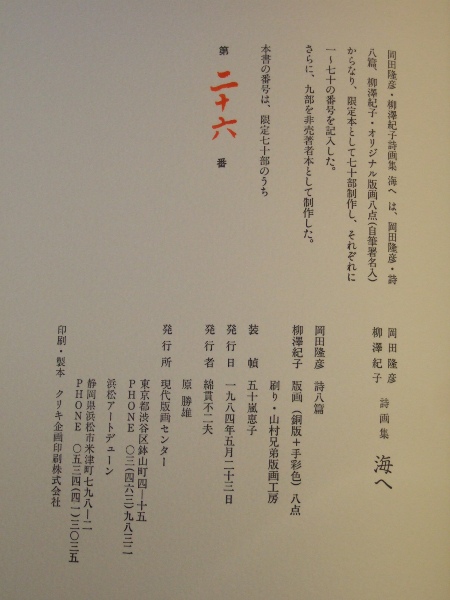 岡田隆彦・柳澤紀子詩画集 海へ は、岡田隆彦・詩
八篇、柳澤紀子・オリジナル版画八点(自筆署名入)
からなり、限定本として七十部制作し、それぞれに
一〜七十の番号を記入した。
さらに、九部を非売著者本として制作した。
本書の番号は、限定七十部のうち
第 二十六 番
岡田隆彦
柳澤紀子 詩画集 海へ
岡田隆彦 詩八篇
柳澤紀子 版画(銅版+手彩色)八点
刷り・山村兄弟版画工房
装幀 五十嵐恵子
発行日 一九八四年五月二十三日
発行者 綿貫不二夫
原勝雄
発行所 現代版画センター
東京都渋谷区鉢山町四—十五
PHONE 〇三(四六三)九八三二
浜松アートデューン
静岡県浜松市米津町七九八—二
PHONE 〇五三四(四一)三〇三五
印刷・製本 クリキ企画印刷株式会社